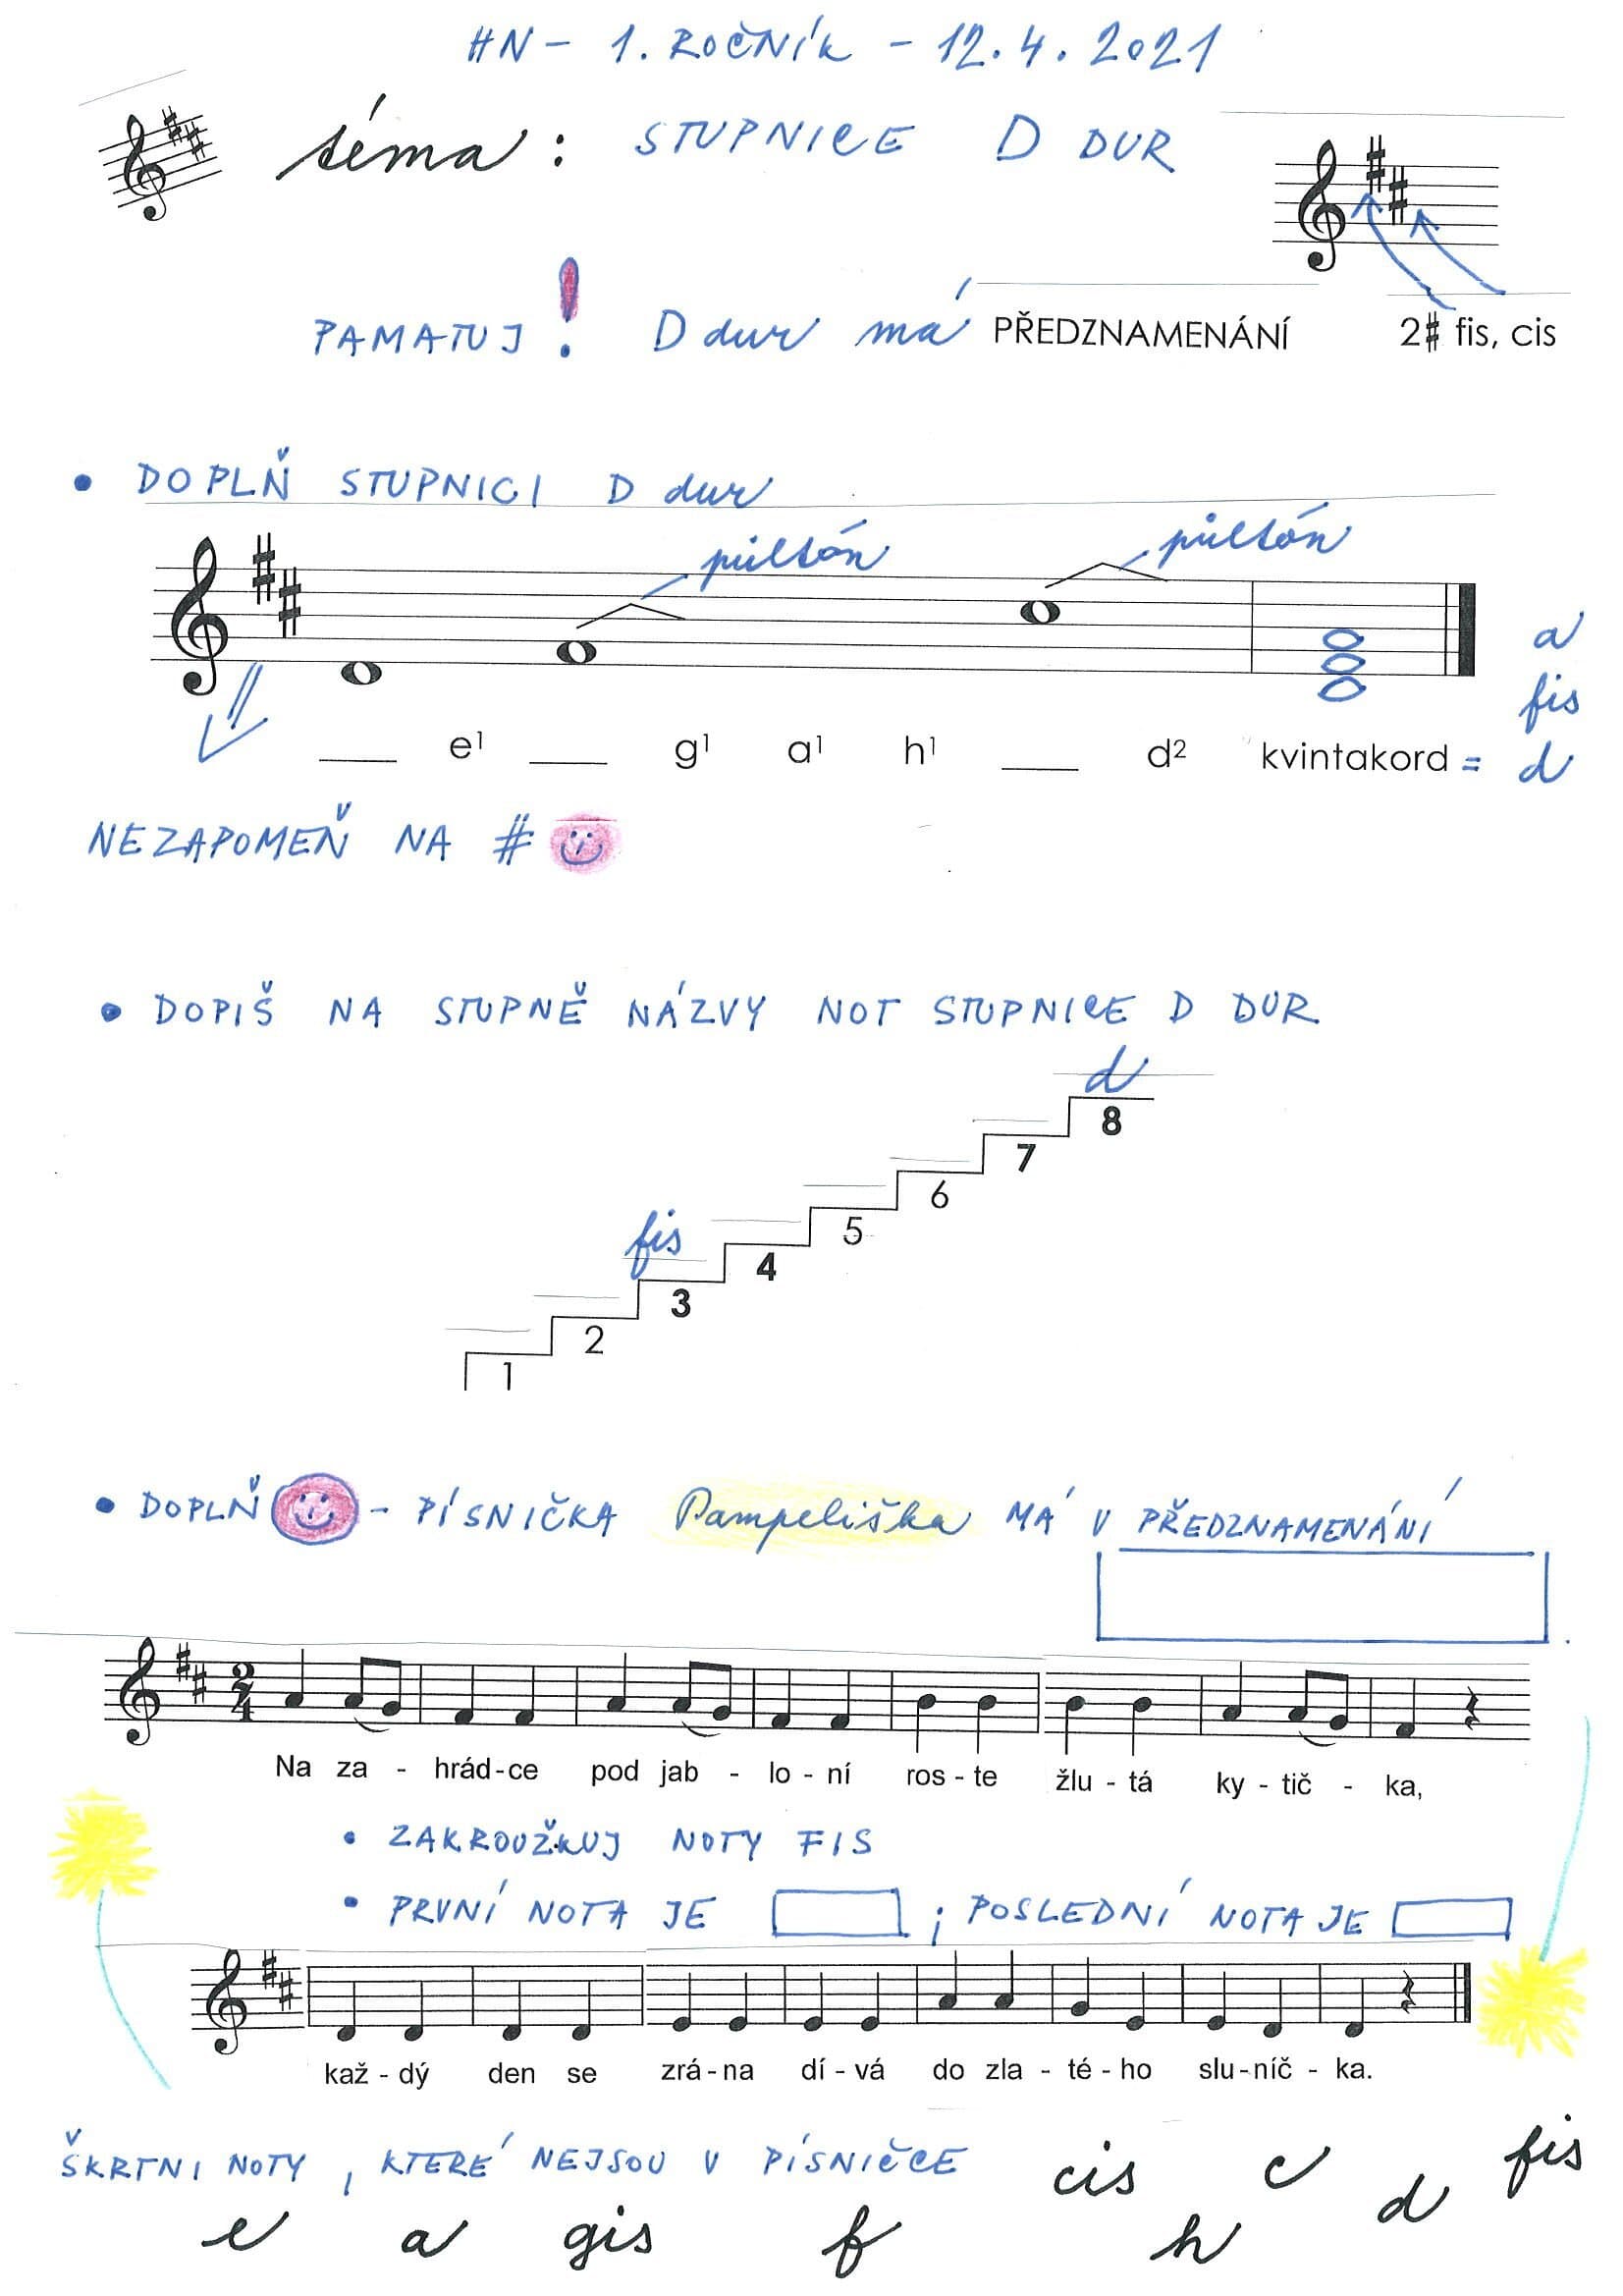 HN - 1. ROČNÍK - 12.4.2021
téma : STUPNICE D DUR
PAMATUJ ! D dur má PŘEDZNAMENÁNÍ 2# fis, cis
• DOPLŇ STUPNICI D dur
půltón půltón
a
fis
___ e¹ ___ g¹ a¹ h¹ ___ d² kvintakord = d
NEZAPOMEŇ NA #
• DOPIŠ NA STUPNĚ NÁZVY NOT STUPNICE D DUR
d
8
7
6
5
fis
4
3
2
1
• DOPLŇ - PÍSNIČKA Pampeliška MÁ V PŘEDZNAMENÁNÍ
2
4
Na za - hrád - ce pod jab - lo - ní ros - te žlu - tá ky - tič - ka,
• ZAKROUŽKUJ NOTY FIS
• PRVNÍ NOTA JE ; POSLEDNÍ NOTA JE
kaž - dý den se zrá - na dí - vá do zla - té - ho slu - níč - ka.
ŠKRTNI NOTY , KTERÉ NEJSOU V PÍSNIČCE cis c d fis
e a gis f h